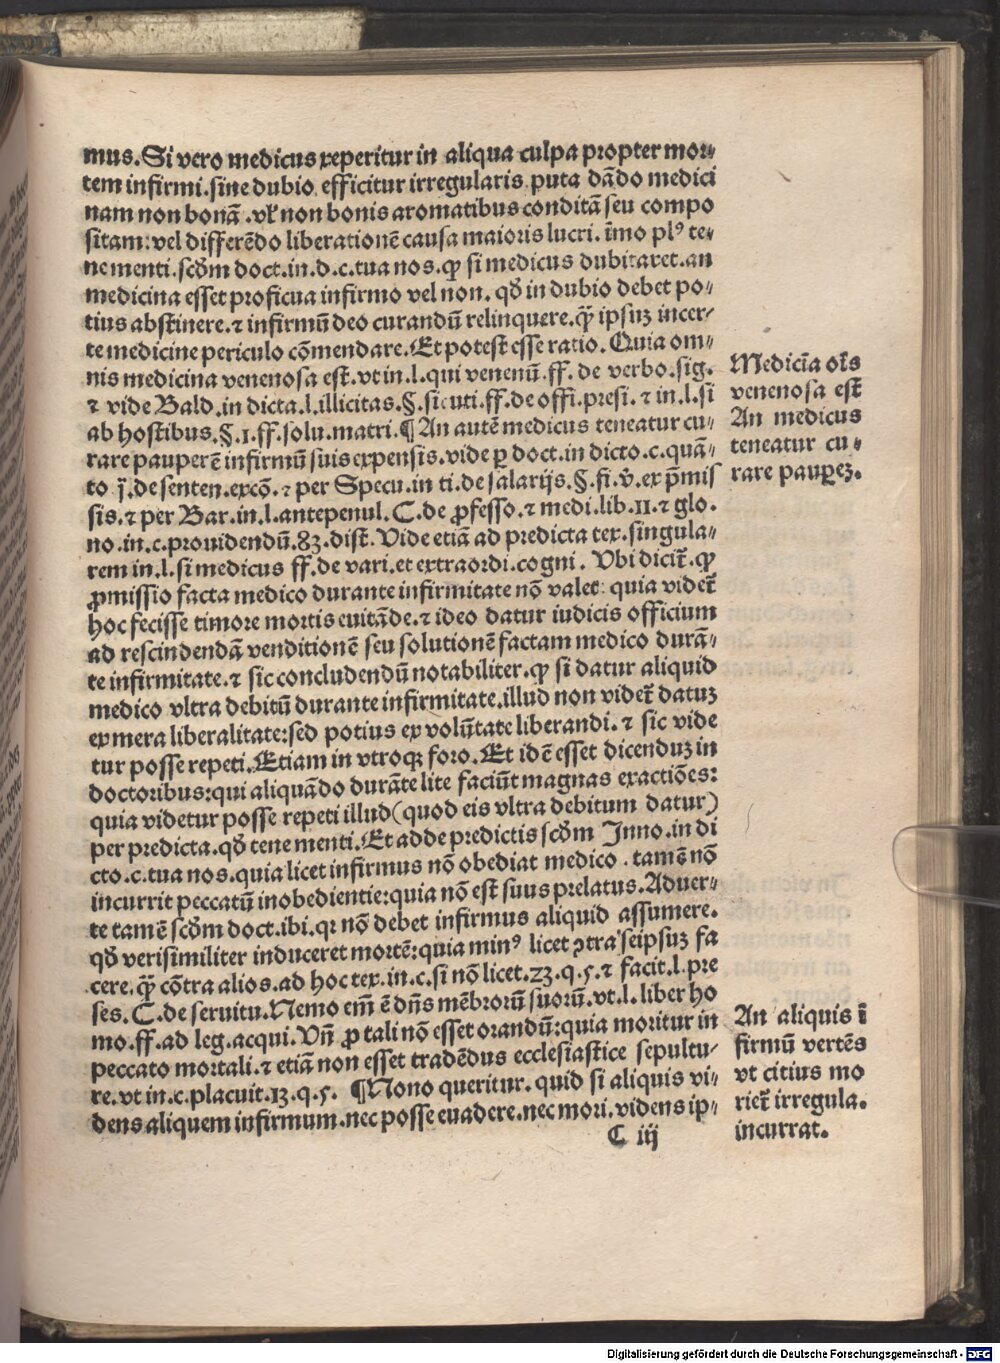 mus. Si vero medicus reperitur in aliqua culpa propter mor⸗
tem infirmi. sine dubio efficitur irregularis puta dādo medici
nam non bonā .vel non bonis aromatibus conditā seu compo
sitam: vel differēdo liberationē causa maioris lucri. īmo plꝰ te⸗
ne menti. scd̄m doct. in .d.c. tua nos. ꝙ si medicus dubitaret. an
medicina esset proficua infirmo vel non. qd̄ in dubio debet po⸗
tius abstinere. ⁊ infirmū deo curandū relinquere. q̄ꝫ ipsuꝫ incer⸗
te medicine periculo cōmendare. Et potest esse ratio. Quia om⸗
nis medicina venenosa est. vt in .l. qui venenū. ff. de verbo. sig.
⁊ vide Bald. in dicta .l. illicitas. §. sicuti. ff. de offi. presi. ⁊ in .l. si
ab hostibus. §. 1. ff. solu. matri. ¶ An autē medicus teneatur cu⸗
rare pauperē infirmū suis expensis. vide ꝑ doct. in dicto .c. quā⸗
to .j. de senten. excō. ⁊ per Specu. in ti. de salarijs. §. fi. v̄. ex p̄mis
sis. ⁊ per Bar. in .l. antepenul. C. de ꝓfesso. ⁊ medi. lib. 11. ⁊ glo.
no. in .c. prouidendū. 83. dist. Vide etiā ad predicta tex. singula⸗
rem in .l. si medicus ff. de vari. et extraordi. cogni. Vbi dicit̄. ꝙ
ꝓmissio facta medico durante infirmitate nō valet: quia videt̄
hoc fecisse timore mortis euitāde. ⁊ ideo datur iudicis officium
ad rescindendā venditionē seu solutionē factam medico durā⸗
te infirmitate. ⁊ sic concludendū notabiliter. ꝙ si datur aliquid
medico vltra debitū durante infirmitate. illud non videt̄ datuꝫ
ex mera liberalitate: sed potius ex volūtate liberandi. ⁊ sic vide
tur posse repeti. Etiam in vtroqꝫ foro. Et idē esset dicenduꝫ in
doctoribus: qui aliquādo durāte lite faciūt magnas exactiōes:
quia videtur posse repeti illud (quod eis vltra debitum datur)
per predicta. qd̄ tene menti. Et adde predictis scd̄m Inno. in di
cto .c. tua nos. quia licet infirmus nō obediat medico . tamē nō
incurrit peccatū inobedientie: quia nō est suus prelatus. Aduer⸗
te tamē scd̄m doct. ibi. qꝛ nō debet infirmus aliquid assumere.
qd̄ verisimiliter induceret mortē: quia minꝰ licet ↄtra seipsuꝫ fa
cere. q̄ꝫ cōtra alios. ad hoc tex. in .c. si nō licet. 23. q. 5. ⁊ facit .l. pre
ses. C. de seruitu. Nemo em̄ ē dn̄s mēbrorū suorū. vt .l. liber ho
mo. ff. ad leg. acqui. Vn̄ ꝓ tali nō esset orandū: quia moritur in
peccato mortali. ⁊ etiā non esset tradēdus ecclesiastice sepultu⸗
re. vt in .c. placuit. 13. q. 5. ¶ Nono queritur. quid si aliquis vi⸗
dens aliquem infirmum. nec posse euadere. nec mori. videns ip⸗
C iij
Medicīa oīs
venenosa est
An medicus
teneatur cu⸗
rare pauꝑeꝫ.
An aliquis ī
firmū vertēs
vt citius mo
riet̄ irregula.
incurrat.
Digitalisierung gefördert durch die Deutsche Forschungsgemeinschaft - DFG